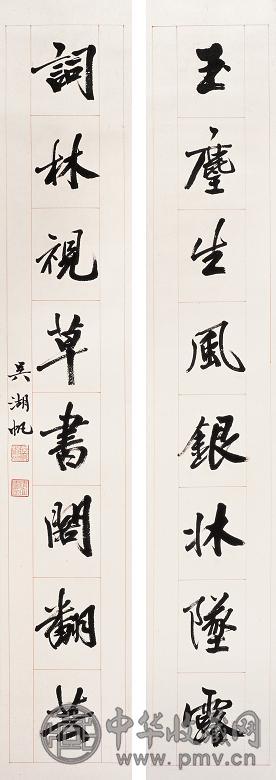 玉麈生風銀牀墜露
詞林視草書閣翻芸
吳湖帆
中华收藏网
www.pmv.cn